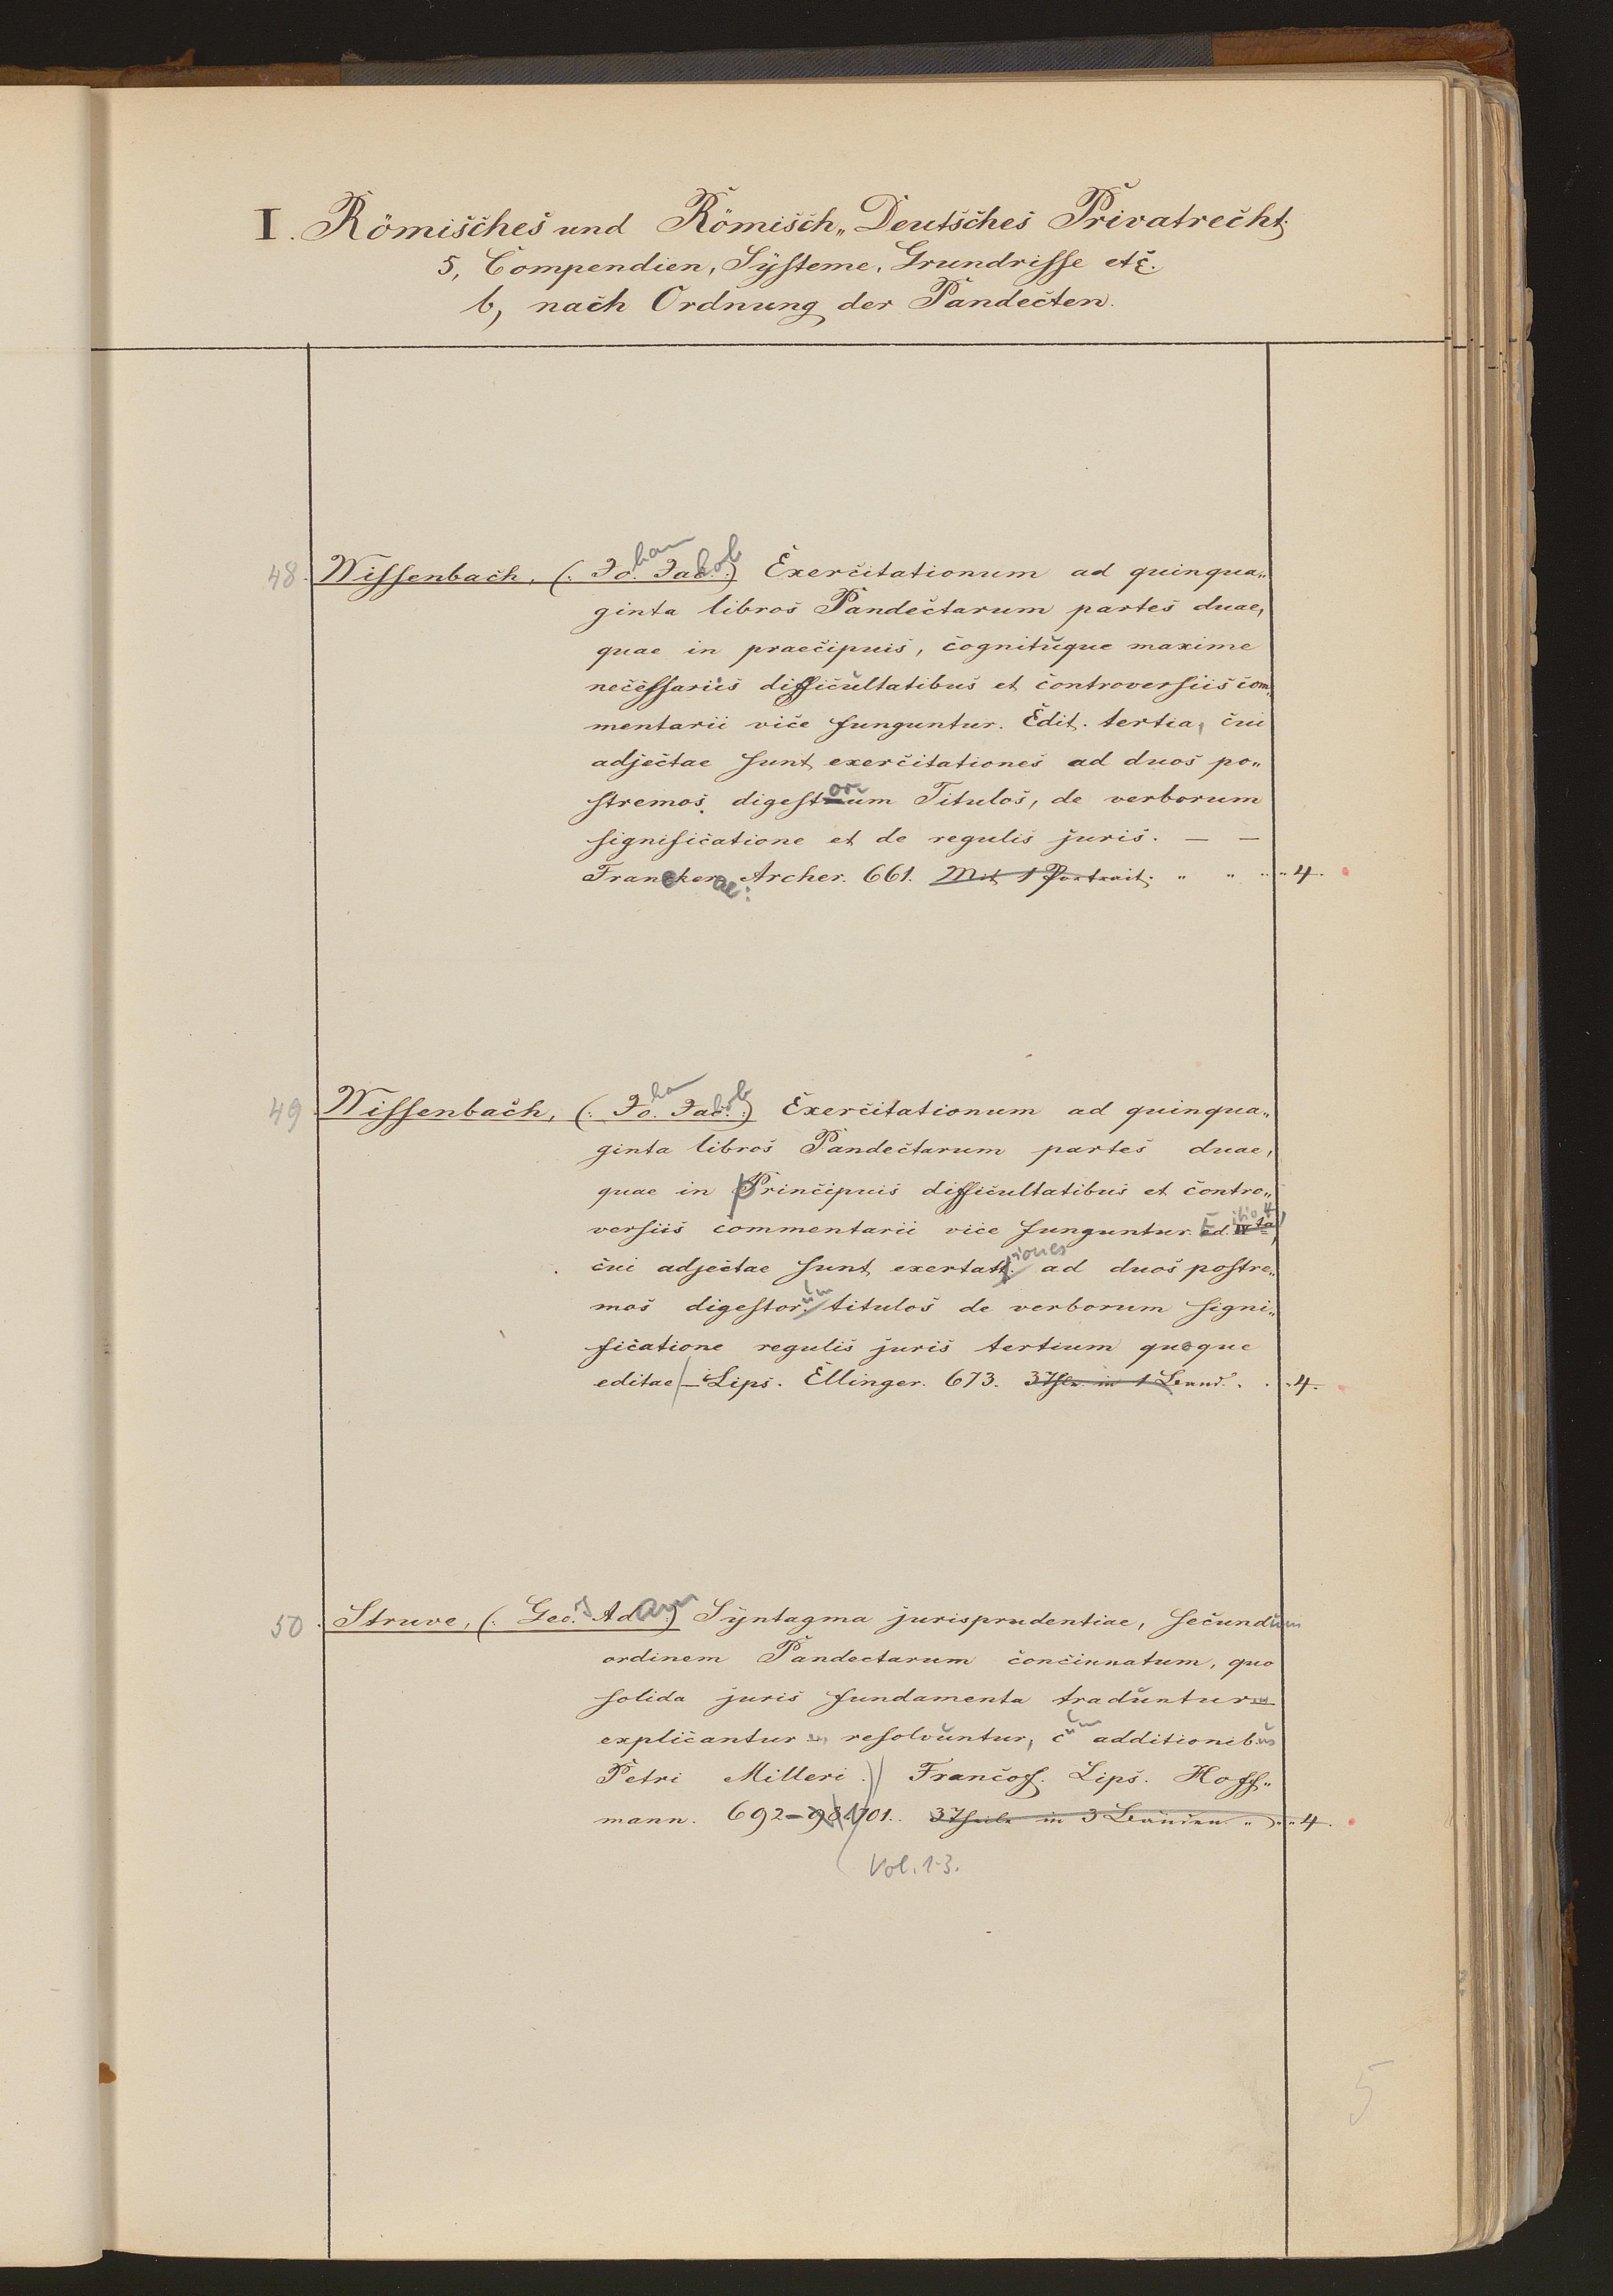 I. Römisches und Römisch„Deutsches Privatrecht.
5, Compendien, Systeme, Grundrisse etc.
b, nach Ordnung der Pandecten.
48. Wissenbach, (: Johan Jakob :) Exercitationum ad quinqua„
ginta libros Pandectarum partes duae,
quae in praecipuis, cognituque maxime
necessariis difficultatibus et controversiis com„
mentarii vice funguntur. Edit. tertia, cui
adjectae sunt exercitationes ad duos po„
stremos digestorum Titulos, de verborum
significatione et de regulis juris. — —
Franekerae: Archer. 661. Mit 1 Portrait. „ „ „ 4.
49. Wissenbach, (: Joha Jakob :) Exercitationum ad quinqua„
ginta libros Pandectarum partes duae,
quae in principuis difficultatibus et contro„
versiis commentarii vice funguntur. Editio 4,
cui adjectae sunt exertationes ad duos postre„
mos digestorum titulos de verborum signi„
ficatione regulis juris tertium quoque
editae — Lips. Ellinger. 673. 3 Thle. in 1 Band. . . 4.
50. Struve, (: Geo. Adam :) Syntagma jurisprudentiae, secundum
ordinem Pandectarum concinnatum, quo
solida juris fundamenta traduntur
explicantur resolvuntur, cum additionibus
Petri Milleri. Francof. Lips. Hoff„
mann. 692-701. 3 Theile in 3 Bänden „ „ 4.
Vol. 1-3.
5